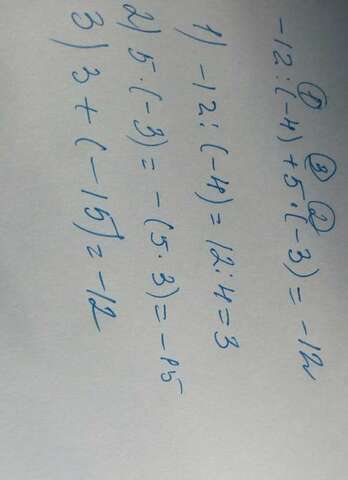 ① ③ ②
-12:(-4)+5·(-3)=-12
1) -12:(-4)=12:4=3
2) 5·(-3)=-(5·3)=-15
3) 3+(-15)=-12